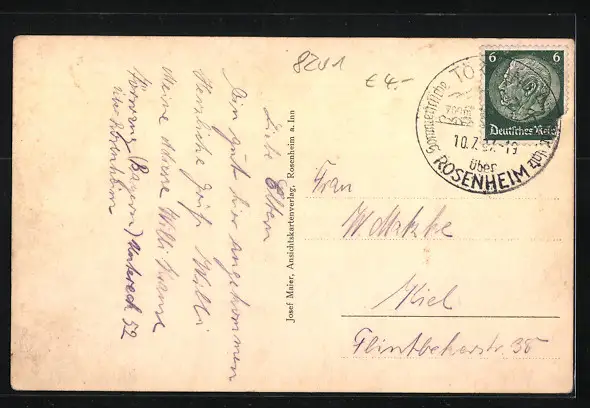 8201
€ 4.-
Liebe Eltern
Bin gut hier angekommen
Herzliche Grüße Willi
Meine Adresse Willi Krause
Törwang (Bayern) Untereck 52
über Rosenheim
Josef Maier, Ansichtskartenverlag, Rosenheim a. Inn
6 6
Deutsches Reich
Sommerfrische
TÖ
10.7.37.-19
über
ROSENHEIM
Frau
Kiel
Flintbekerstr. 38